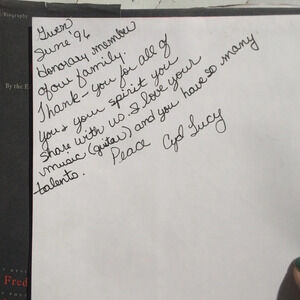 Biography
Gwen
June '96
Honorary member
of our family.
Thank-you for all of
you & your spirit you
share with us. I love your
music (guitar) and you have so many
talents.
Peace Cyd Lucy
By the E
Fred